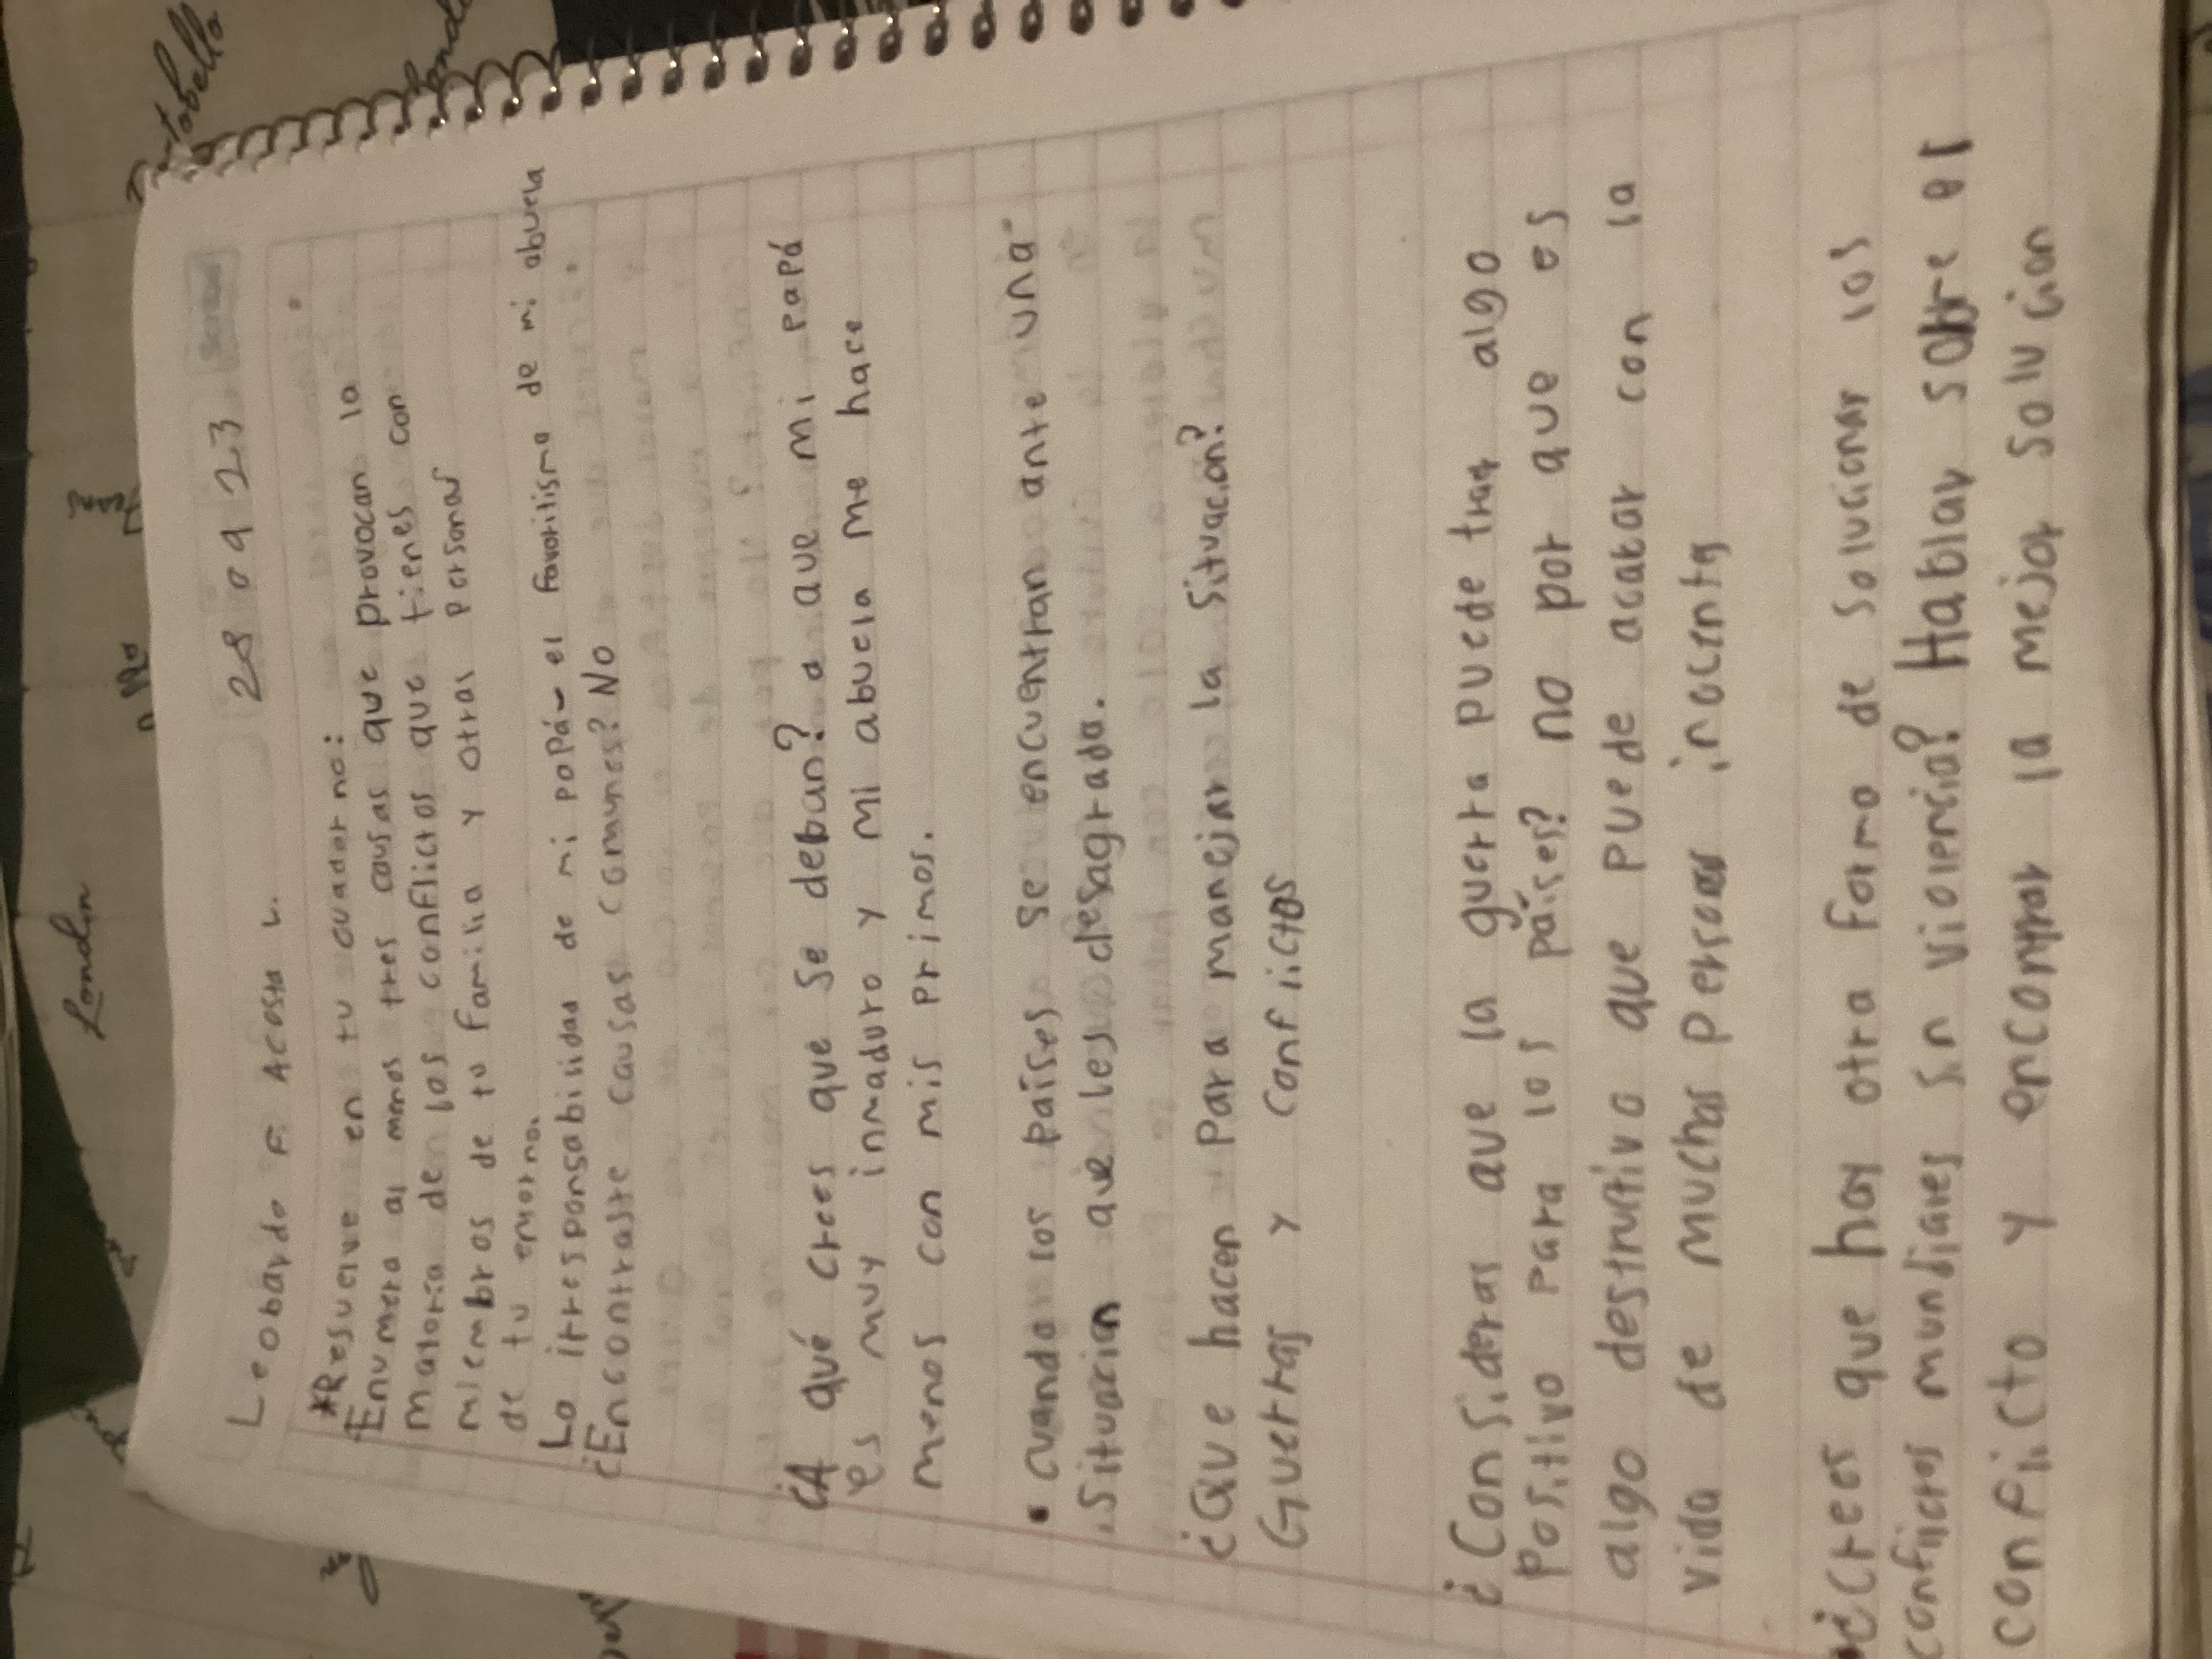 Leobardo F. Acosta L.
28 09 23
*Resuelve en tu cuaderno:
Enumera al menos tres causas que provocan la
mayoría de los conflictos que tienes con
miembros de tu familia y otras personas
de tu entorno.
Lo irresponsabilidad de mi papá - el favoritismo de mi abuela
¿Encontraste causas comunes? No
¿A qué crees que se deban? a que mi papá
es muy inmaduro y mi abuela me hace
menos con mis primos.
• cuando los países se encuentran ante una
situación que les desagrada.
¿Que hacen para manejar la situación?
Guerras y conflictos
¿Consideras que la guerra puede traer algo
positivo para los países? no por que es
algo destrutivo que puede acabar con la
vida de muchas personas inocente
•¿Crees que hay otra forma de solucionar los
conflictos mundiales sin violencia? Hablar sobre el
conflicto y encontrar la mejor solucion
London